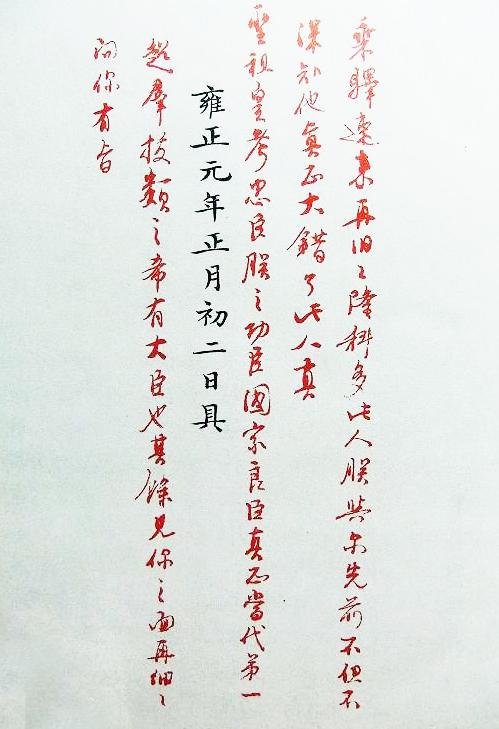 乘驛速来再旧〻隆科多此人朕與尔先前不但不
深知他真正大錯了此人真
聖祖皇考忠臣朕之功臣國家良臣真正當代第一
雍正元年正月初二日具
超羣拔類之希有大臣也其餘見你之面再細〻
問你有旨